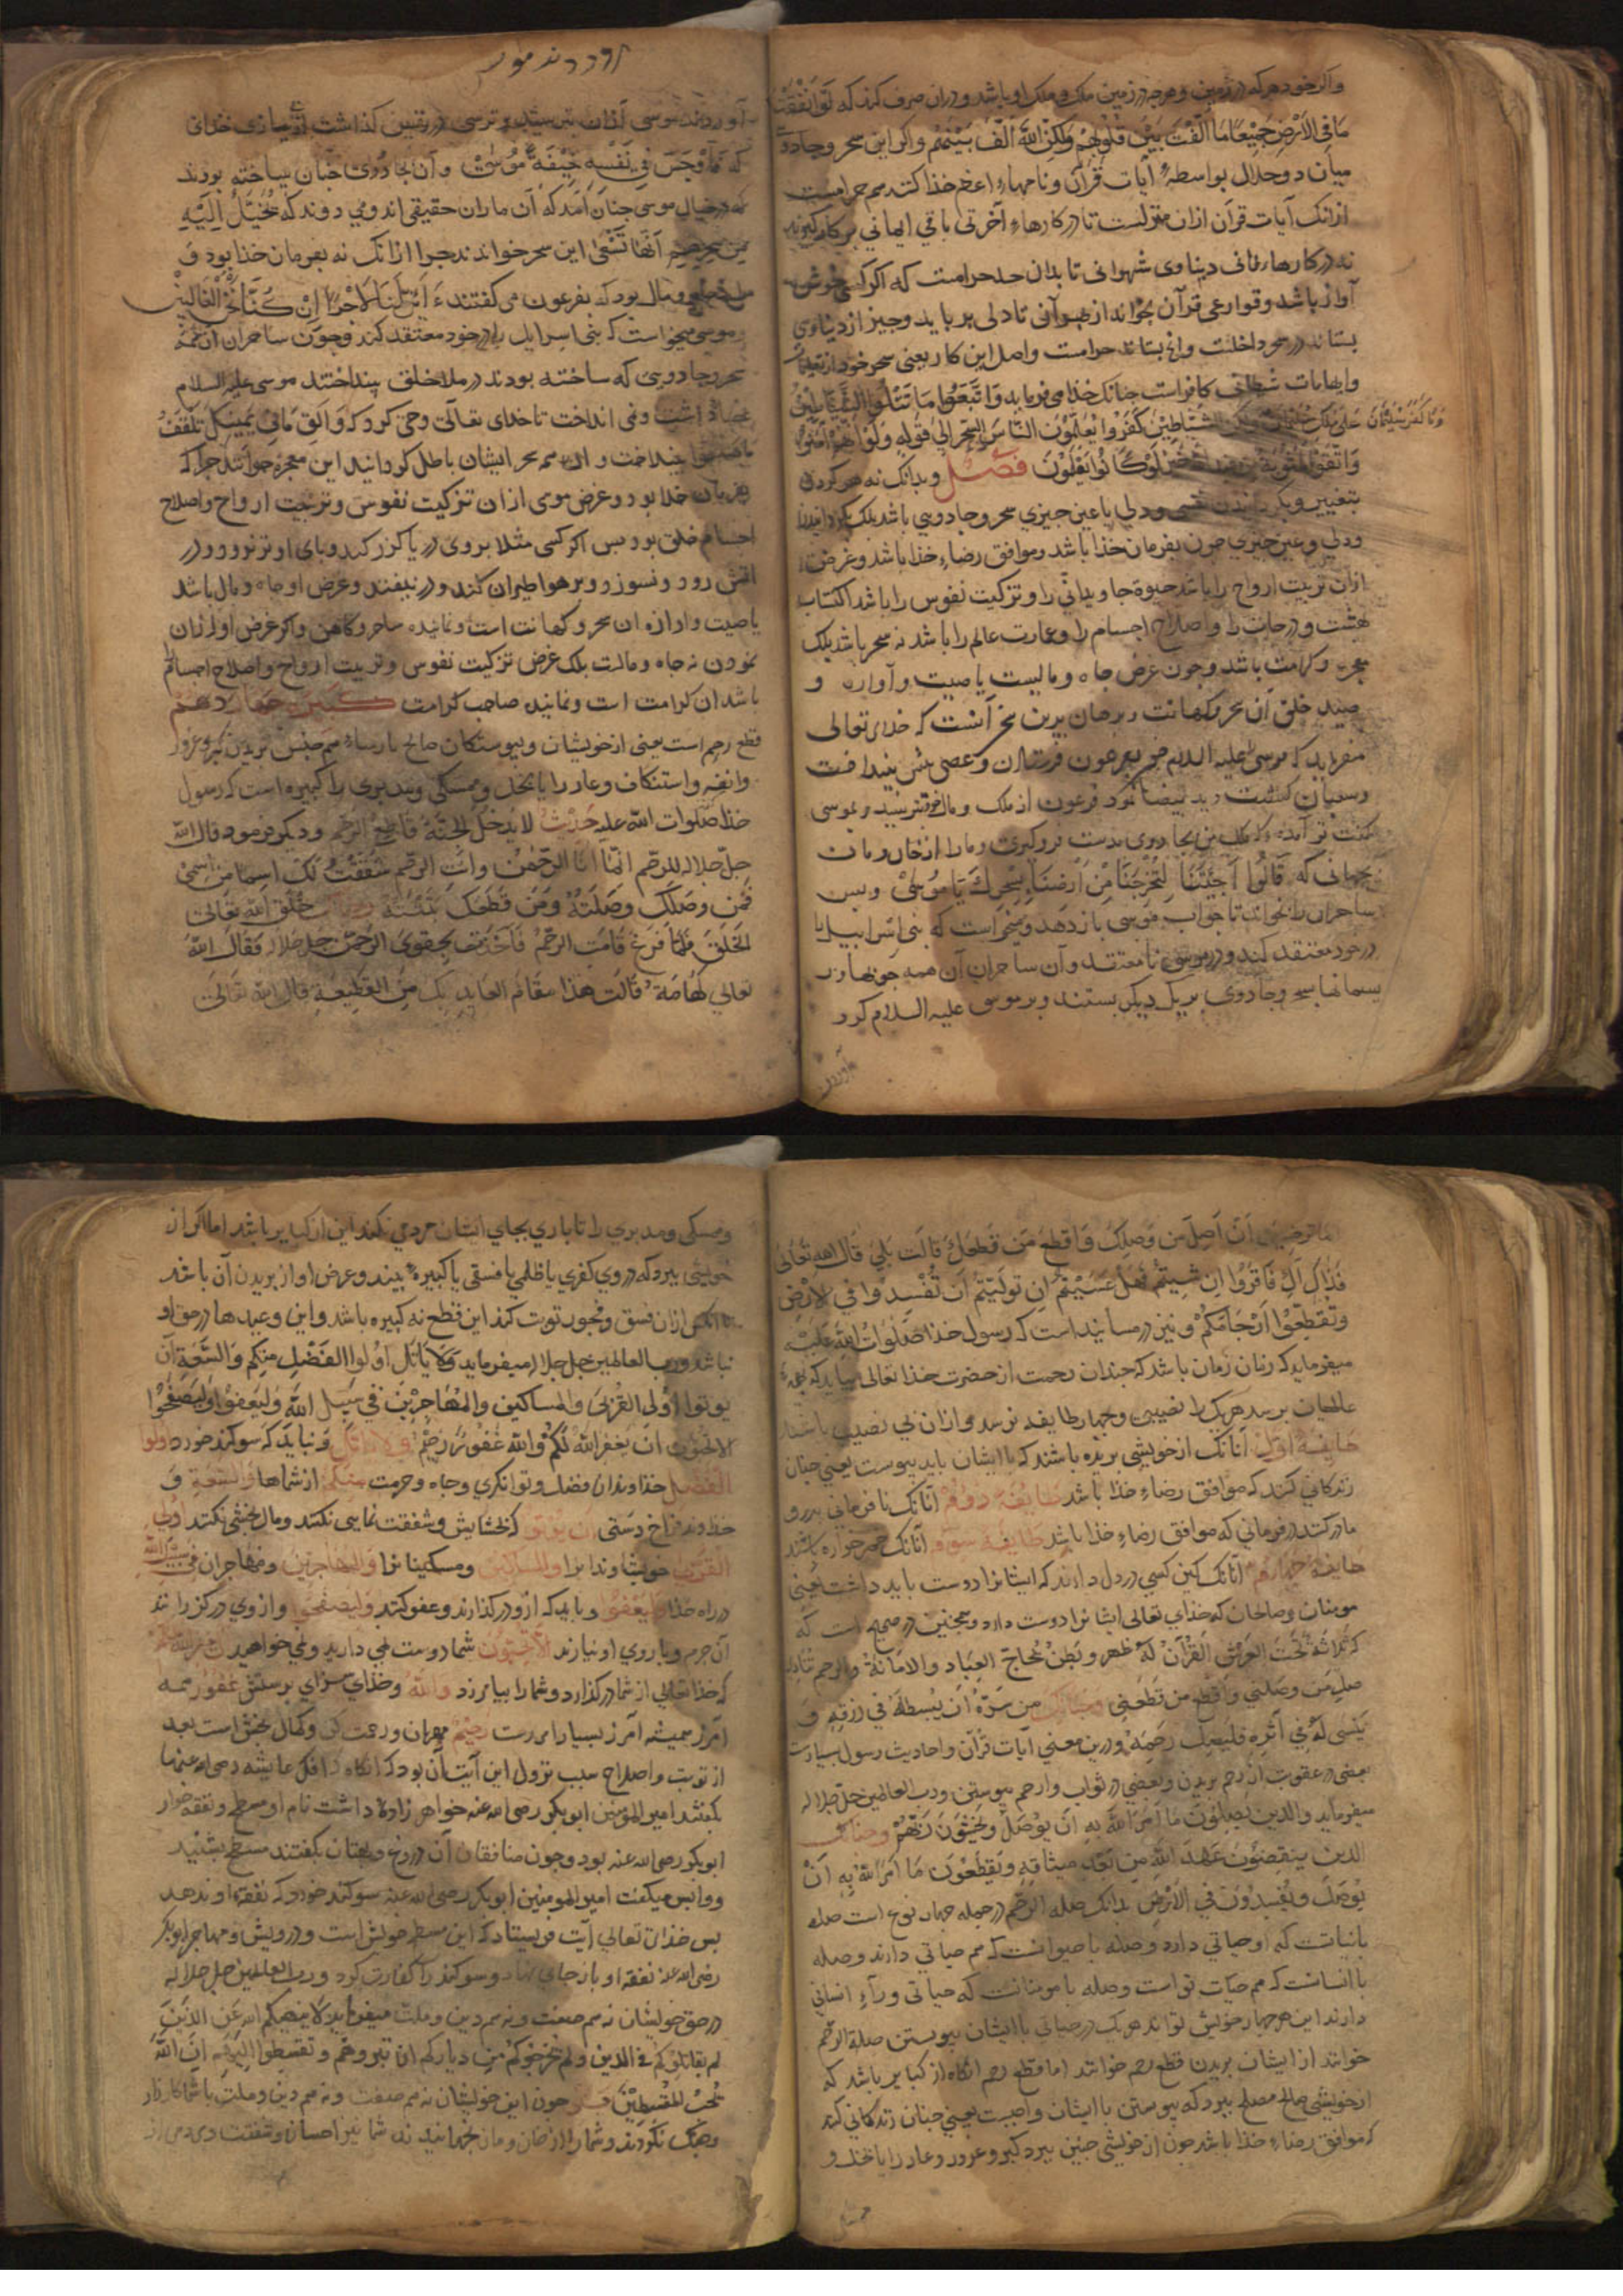 واکر خود هرکه در زمین وهرچه در زمین ملک وملک او باشد ودران صرف کند که لَوْ أَنْفَقْتَ
مَا فِي الْأَرْضِ جَمِيْعًا مَا أَلَّفْتَ بَيْنَ قُلُوبِهِمْ وَلَكِنَّ اللَّهَ أَلَّفَ بَيْنَهُمْ واکر این سحر وجادوی
میان دو حلال بواسطهٔ آیات قرآن ونامهاء اعظم خذا کند هم حرامست
ازانک آیات قرآن ازان منزلست تا در کارهاء آخرتی باقی ایمانی بر کار کیرند
نه در کارهاء فانی دیناوی شهوانی تا بدان حد حرامست که اکر کسی خوش
آواز باشد وقوارعی قرآن بخواند از بهر آنی تا دلی برباید وچیز از دیناوی
بستاند در سحر داخلست وانچ بستاند حرامست واصل این کار یعنی سحر خود از تعلیمات
وایهامات شیطانی کافراست چنانک خذا می فرماید وَاتَّبَعُوا مَا تَتْلُوا الشَّيَاطِيْنُ
عَلَى مُلْكِ سُلَيْمَانَ وَمَا كَفَرَ سُلَيْمَانُ وَلَكِنَّ الشَّيَاطِيْنَ كَفَرُوا يُعَلِّمُوْنَ النَّاسَ السِّحْرَ الی قوله وَلَوْ أَنَّهُمْ آمَنُوْا
وَاتَّقَوْا لَمَثُوبَةٌ مِنْ عِنْدِ اللَّهِ خَيْرٌ لَوْ كَانُوا يَعْلَمُوْنَ فصل وبدانک نه هر کردن
بتغییر وبکردانیدن نفسی ودلی یا عین چیزی سحر وجادویی باشد بلک بکردانیدن
ودلی وعین چیزی چون بفرمان خذا باشد وموافق رضاء خذا باشد وغرض
ازان تربیت ارواح را باشد حیوة جاویدانی را وتزکیت نفوس را باشد اکتساب
بهشت ودرجات را واصلاح اجسام را وعمارت عالم را باشد نه سحر باشد بلک
معجزه وکرامت باشد وچون غرض جاه ومالیست یا صیت وآوازه و
صید خلق آن سحر وکهانت وبرهان برین سخن آنست که خدای تعالی
میفرماید که موسی علیه السلام چون بفرعون فرستادن وعصی پیش بینداخت
کفت تو آمدهٔ که ملک من بجادوی بدست فروکیری ومارا از خان ومان
بجهانی که قَالُوا أَجِئْتَنَا لِتُخْرِجَنَا مِنْ أَرْضِنَا بِسِحْرِكَ يَا مُوسَى وپس
ساحران را بخواند تا جواب موسی باز دهد ومیخواست که بنی اسراییل را
در خود معتقد کند ودر موسی نامعتقد وآن ساحران آن همه چوبها ور
یسمانها بسحر وجادوی بریک دیکر بستند وبر موسی علیه السلام کرد
آوردند
آوردند موسی
آوردند موسی ازان بترسید وترسی در نفس کذاشت از بیمازی خذای
که فَأَوْجَسَ فِي نَفْسِهِ خِيْفَةً مُوسَى وآن بجادوی چنان ساخته بودند
که در خیال موسی چنان آمد که آن ماران حقیقی اند ومی دوند که يُخَيَّلُ إِلَيْهِ
مِنْ سِحْرِهِمْ أَنَّهَا تَسْعَى این سحر خواندند چرا ازانک نه بفرمان خذا بود و
مال بود که بفرعون می کفتند أَئِنَّ لَنَا لَأَجْرًا إِنْ كُنَّا نَحْنُ الْغَالِبِيْنَ
وموسی میخواست که بنی اسراییل را در خود معتقد کند وچون ساحران ازهمه
سحر وجادویی که ساخته بودند در ملا خلق بینداختند موسی علیه السلام
عصا داشت ونمی انداخت تا خدای تعالی وحی کرد که وَأَلْقِ مَا فِي يَمِيْنِكَ تَلْقَفْ
مَا صَنَعُوا بینداخت وآن همه سحر ایشان باطل کردانید این معجزه خوانند چرا که
بفرمان خذا بود وغرض موسی ازان تزکیت نفوس وتربیت ارواح واصلاح
اجسام خلق بود پس اکر کسی مثلا بر روی دریا کزر کند وپای او تر نرود در
آتش رود ونسوزد وبر هوا طیران کند ودر نیفتد وغرض او جاه ومال باشد
یا صیت وآوازه آن سحر وکهانت است ونماینده ساحر وکاهن واکر غرض او ازان
نمودن نه جاه ومالست بلک غرض تزکیت نفوس وتربیت ارواح واصلاح اجسام
باشد آن کرامت است ونماینده صاحب کرامت کبیره چهاردهم
قطع رحم است یعنی از خویشان وپیوستکان صالح پارساء هم جنس بریدن بکبر وغرور
وانفه واستنکاف وعار را یا بخل وممسکی ومدبری را کبیره است که رسول
خذا صلوات الله علیه حَدَّثَ لا يدخل الجنة قاطع الرحم ودیکر فرمود قال الله
جل جلاله للرحم انّما أنا الرحمن وانت الرحم شققت لک اسما من اسمی
فمن وصلک وصلته ومن قطعک بتته خلق الله تعالی
الخلق فلما فرغ قامت الرحم فاخذت بحقوی الرحمن جل جلاله فقال الله
تعالی لها مه قالت هذا مقام العائذ بک من القطیعة قال الله تعالی
اما ترضین أن اصل من وصلک واقطع من قطعک قالت بلی قال الله تعالی
فذاک لک فاقروا ان شیتم فَهَلْ عَسَيْتُمْ إِنْ تَوَلَّيْتُمْ أَنْ تُفْسِدُوا فِي الْأَرْضِ
وَتُقَطِّعُوْا أَرْحَامَكُمْ ونیز در مسانید است که رسول خذا صلوات الله علیه
میفرماید که زنان زمان باشد که چندان رحمت از حضرت خذا تعالی بیاید که بهمهٔ
عالمیان برسد هریک را نصیبی وچهار طایفه نرسد وازان بی نصیب باشند
طایفهٔ اول آنانک از خویشی بریده باشند که با ایشان باید پیوست یعنی چنان
زندکانی کنند که موافق رضاء خذا باشد طایفهٔ دوم آنانک نافرمانی پدر و
مادر کنند در فرمانی که موافق رضاء خذا باشد طایفهٔ سوم آنانک خمرخواره باشند
طایفهٔ چهارم آنانک کین کسی در دل دارند که ایشانرا دوست باید داشت یعنی
مومنان وصالحان که خذای تعالی ایشانرا دوست دارد وهمچنین در صحیح است که
که ثلاثة تحت العرش القرآن له ظهر وبطن یحاج العباد والامانة والرحم تنادی
صل من وصلنی واقطع من قطعنی وچنانک من سره أن یبسط له فی رزقه و
ینسی له فی اثره فلیصل رحمه ودرین معنی آیات قرآن واحادیث رسول بسیارست
بعضی در عقوبت از رحم بریدن وبعضی در ثواب وارحم پیوستن ورب العالمین جل جلاله
میفرماید والذین یصلون ما امر الله به أن یوصل ویخشون ربهم وچنانک
الذین ینقضون عهد الله من بعد میثاقه ویقطعون ما امر الله به أن
یوصل ویفسدون فی الارض بدانک صله الرحم در جمله چهار نوع است صله
با نباتت که او حیاتی دارد وصله با حیوانست که هم حیاتی دارند وصله
با انسانست که هم حیات تواست وصله با مومنانت که حیاتی وراء انسانی
دارند این هر چهار خویش تواند هریک در حیاتی با ایشان پیوستن صلة الرحم
خوانند از ایشان بریدن قطع رحم خوانند اما قطع رحم آنکاه از کبایر باشد که
از خویشی صالح مصلح ببرد که پیوستن با ایشان واجبست یعنی چنان زندکانی کند
که موافق رضاء خذا باشد چون از خویشی چنین ببرد کبر وغرور وعار را یا بخل و
ممسکی
وممسکی ومدبری را تا باری بجای ایشان مردمی نکند این از کبایر باشد اما اکر از
خویشی ببرد که در وی کفری یا ظلمی یا فسقی یا کبیرهٔ بیند وغرض او از بریدن آن باشد
تا آنکس ازان فسق وفجور توبت کند این قطع نه کبیره باشد واین وعیدها در حق او
نباشد ورب العالمین جل جلاله میفرماید وَلَا يَأْتَلِ أُولُوا الْفَضْلِ مِنْكُمْ وَالسَّعَةِ أَنْ
يُؤْتُوا أُولِي الْقُرْبَى وَالْمَسَاكِيْنَ وَالْمُهَاجِرِيْنَ فِي سَبِيْلِ اللَّهِ وَلْيَعْفُوْا وَلْيَصْفَحُوْا
أَلَا تُحِبُّوْنَ أَنْ يَغْفِرَ اللَّهُ لَكُمْ وَاللَّهُ غَفُوْرٌ رَحِيْمٌ ولا یاتل ونباید که سوکند خورد اولوا
الفضل خذاوندان فضل وتوانکری وجاه وحرمت منکم از شماها والسعة و
خذاوند فراخ دستی أن یوتوا که بخشایش وشفقت نمایی نکنند ومال بخشی نکنند اولی
القربی خویشاوندانرا والمساکین ومسکینانرا والمهاجرین ومهاجران فی سبیل الله
در راه خذا ولیعفوا وباید که ازو درکذارند وعفو کنند ولیصفحوا وازوی درکزرانند
آن جرم وبا روی او نیارند الا تحبون شما دوست نمی دارید ونمی خواهید أن یغفر الله لکم
که خذا تعالی از شما درکذارد وشما را بیامرزد والله وخذای سزای پرستش غفور همه
آمرز همیشه آمرز بسیار آمرزست رحیم مهربان ورحمت کن وکمال بخش است بعد
از توبت واصلاح سبب نزول این آیت آن بود که آنکاه که افک عایشه رضی الله عنها
بکفتند امیر المومنین ابوبکر رضی الله عنه خواهر زادهٔ داشت نام او مسطح ونفقه خوار
ابوبکر رضی الله عنه بود وچون منافقان آن دروغ وبهتان بکفتند مسطح بشنید
ووا پس میکفت امیر المومنین ابوبکر رضی الله عنه سوکند خورد که نفقهٔ او ندهد
پس خذای تعالی آیت فرستاد که این مسطح خویش است ودرویش ومهاجر ابوبکر
رضی الله عنه نفقهٔ او باز جای نهاد وسوکند را کفارت کرد ورب العالمین جل جلاله
در حق خویشان نه هم صفت ونه هم دین وملت میفرماید لَا يَنْهَاكُمُ اللَّهُ عَنِ الَّذِيْنَ
لَمْ يُقَاتِلُوكُمْ فِي الدِّيْنِ وَلَمْ يُخْرِجُوْكُمْ مِنْ دِيَارِكُمْ أَنْ تَبَرُّوْهُمْ وَتُقْسِطُوا إِلَيْهِمْ إِنَّ اللَّهَ
يُحِبُّ الْمُقْسِطِيْنَ چون این خویشان نه هم صفت ونه هم دین وملت با شما کارزار
وجنک نکردند وشما را از خان ومان بجهانیدند شما نیز احسان وشفقت